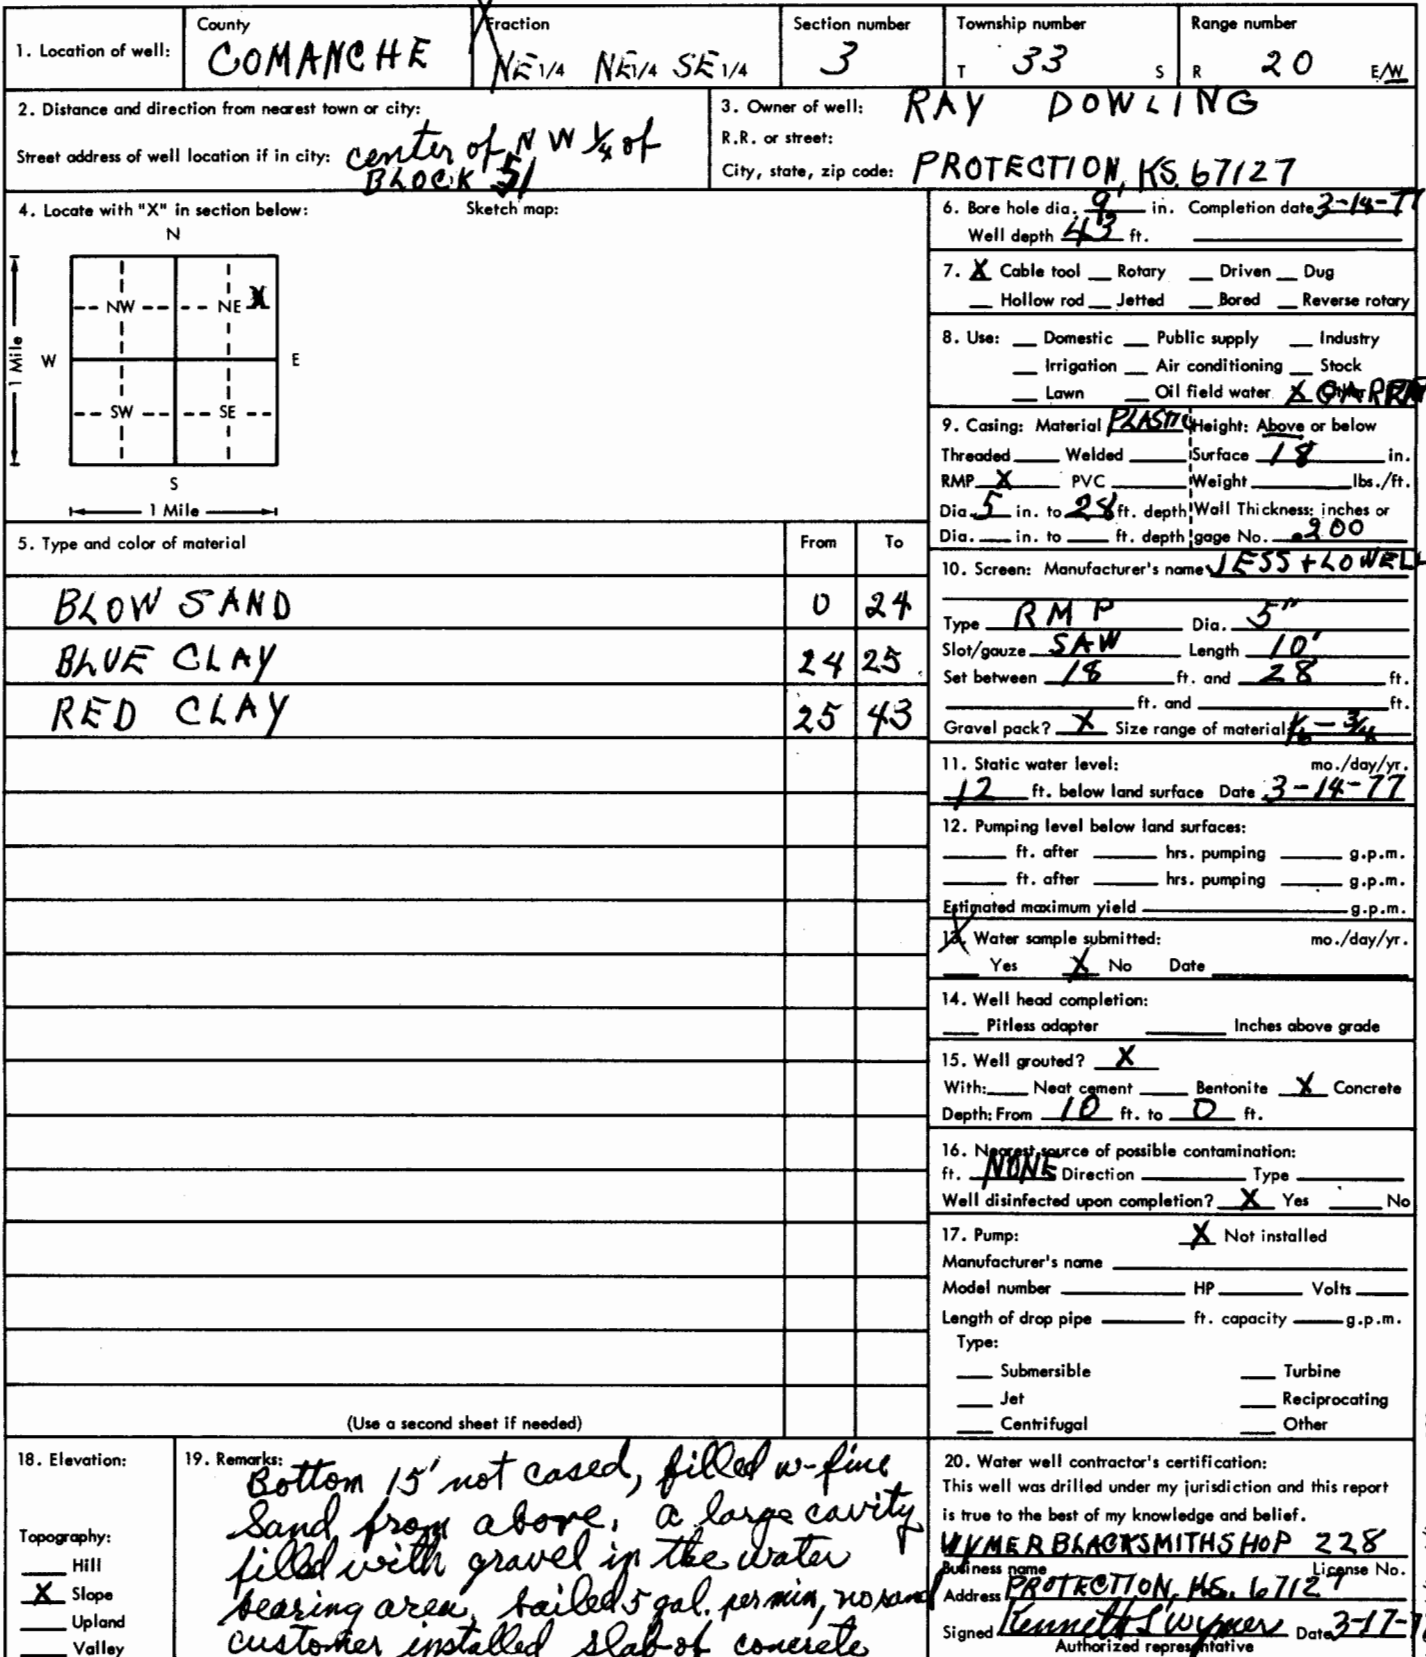 County
Fraction
Section number
Township number
Range number
1. Location of well:
COMANCHE
NE 1/4 NE 1/4 SE 1/4
3
T 33 S
R 20 E/W
2. Distance and direction from nearest town or city:
Street address of well location if in city: center of NW 1/4 of
BLOCK 51
3. Owner of well: RAY DOWLING
R.R. or street:
City, state, zip code: PROTECTION, KS. 67127
4. Locate with "X" in section below:
Sketch map:
N
NW NE X
W E
1 Mile
SW SE
S
1 Mile
5. Type and color of material From To
BLOW SAND 0 24
BLUE CLAY 24 25
RED CLAY 25 43
(Use a second sheet if needed)
6. Bore hole dia. 9" in. Completion date 3-14-77
Well depth 43 ft.
7. X Cable tool __ Rotary __ Driven __ Dug
__ Hollow rod __ Jetted __ Bored __ Reverse rotary
8. Use: __ Domestic __ Public supply __ Industry
__ Irrigation __ Air conditioning __ Stock
__ Lawn __ Oil field water X
9. Casing: Material PLASTIC Height: Above or below
Threaded __ Welded __ Surface 18 in.
RMP X PVC __ Weight __ lbs./ft.
Dia. 5 in. to 28 ft. depth Wall Thickness: inches or
Dia. __ in. to __ ft. depth gage No. .200
10. Screen: Manufacturer's name JESS + LOWELL
Type RMP Dia. 5"
Slot/gauze SAW Length 10'
Set between 18 ft. and 28 ft.
__ ft. and __ ft.
Gravel pack? X Size range of material - 3/4
11. Static water level: mo./day/yr.
12 ft. below land surface Date 3-14-77
12. Pumping level below land surfaces:
__ ft. after __ hrs. pumping __ g.p.m.
__ ft. after __ hrs. pumping __ g.p.m.
Estimated maximum yield __ g.p.m.
13. Water sample submitted: mo./day/yr.
__ Yes X No Date __
14. Well head completion:
__ Pitless adapter __ Inches above grade
15. Well grouted? X
With: __ Neat cement __ Bentonite X Concrete
Depth: From 10 ft. to 0 ft.
16. Nearest source of possible contamination:
ft. NONE Direction __ Type __
Well disinfected upon completion? X Yes __ No
17. Pump: X Not installed
Manufacturer's name __
Model number __ HP __ Volts __
Length of drop pipe __ ft. capacity __ g.p.m.
Type:
__ Submersible __ Turbine
__ Jet __ Reciprocating
__ Centrifugal __ Other
18. Elevation:
Topography:
__ Hill
X Slope
__ Upland
__ Valley
19. Remarks:
Bottom 15' not cased, filled w-fine
sand from above. a large cavity
filled with gravel in the water
bearing area, bailed 5 gal. per min, no sand
customer installed slab of concrete
20. Water well contractor's certification:
This well was drilled under my jurisdiction and this report
is true to the best of my knowledge and belief.
WYMER BLACKSMITH SHOP 228
Business name License No.
Address PROTECTION, KS. 67127
Signed Kenneth L Wymer Date 3-17-7
Authorized representative